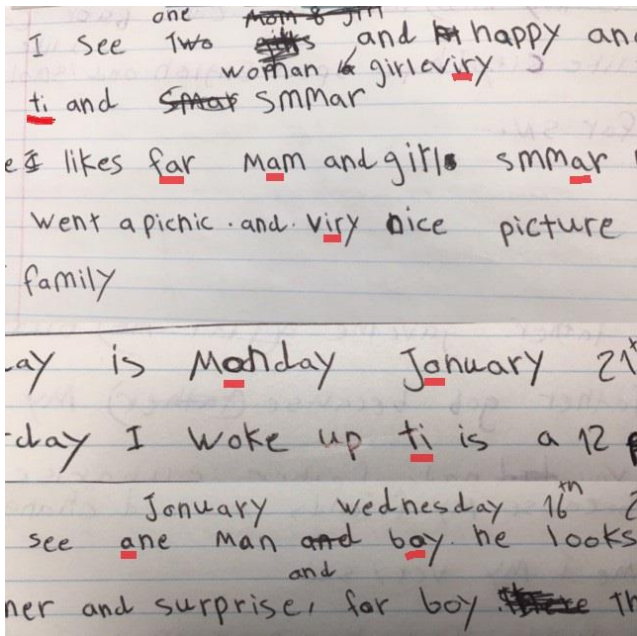 one
I see Two and happy an
woman & girl eviry
ti and smar smmar
e I likes far Mam and girls smmar
went a picnic . and . viry nice picture
family
ay is Monday Jonuary 21
day I woke up ti is a 12
Jonuary wednesday 16th 2
see ane man and bay. he looks
and
her and surprise, for boy there Th